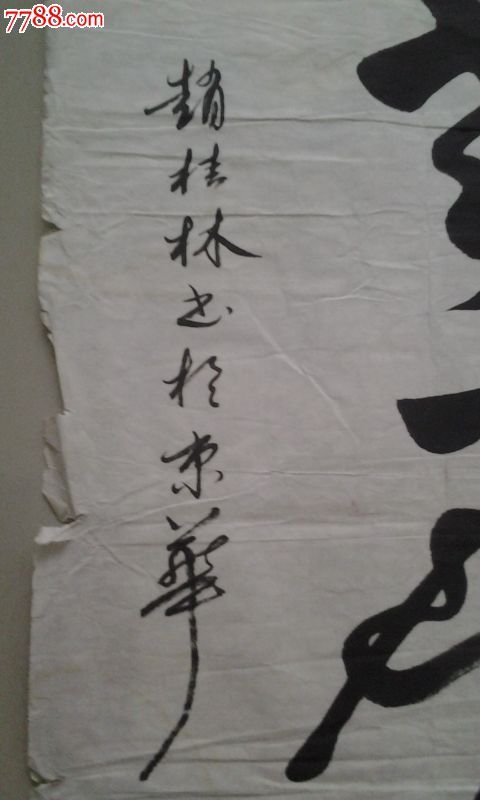 7788.com
趙桂林书於京華